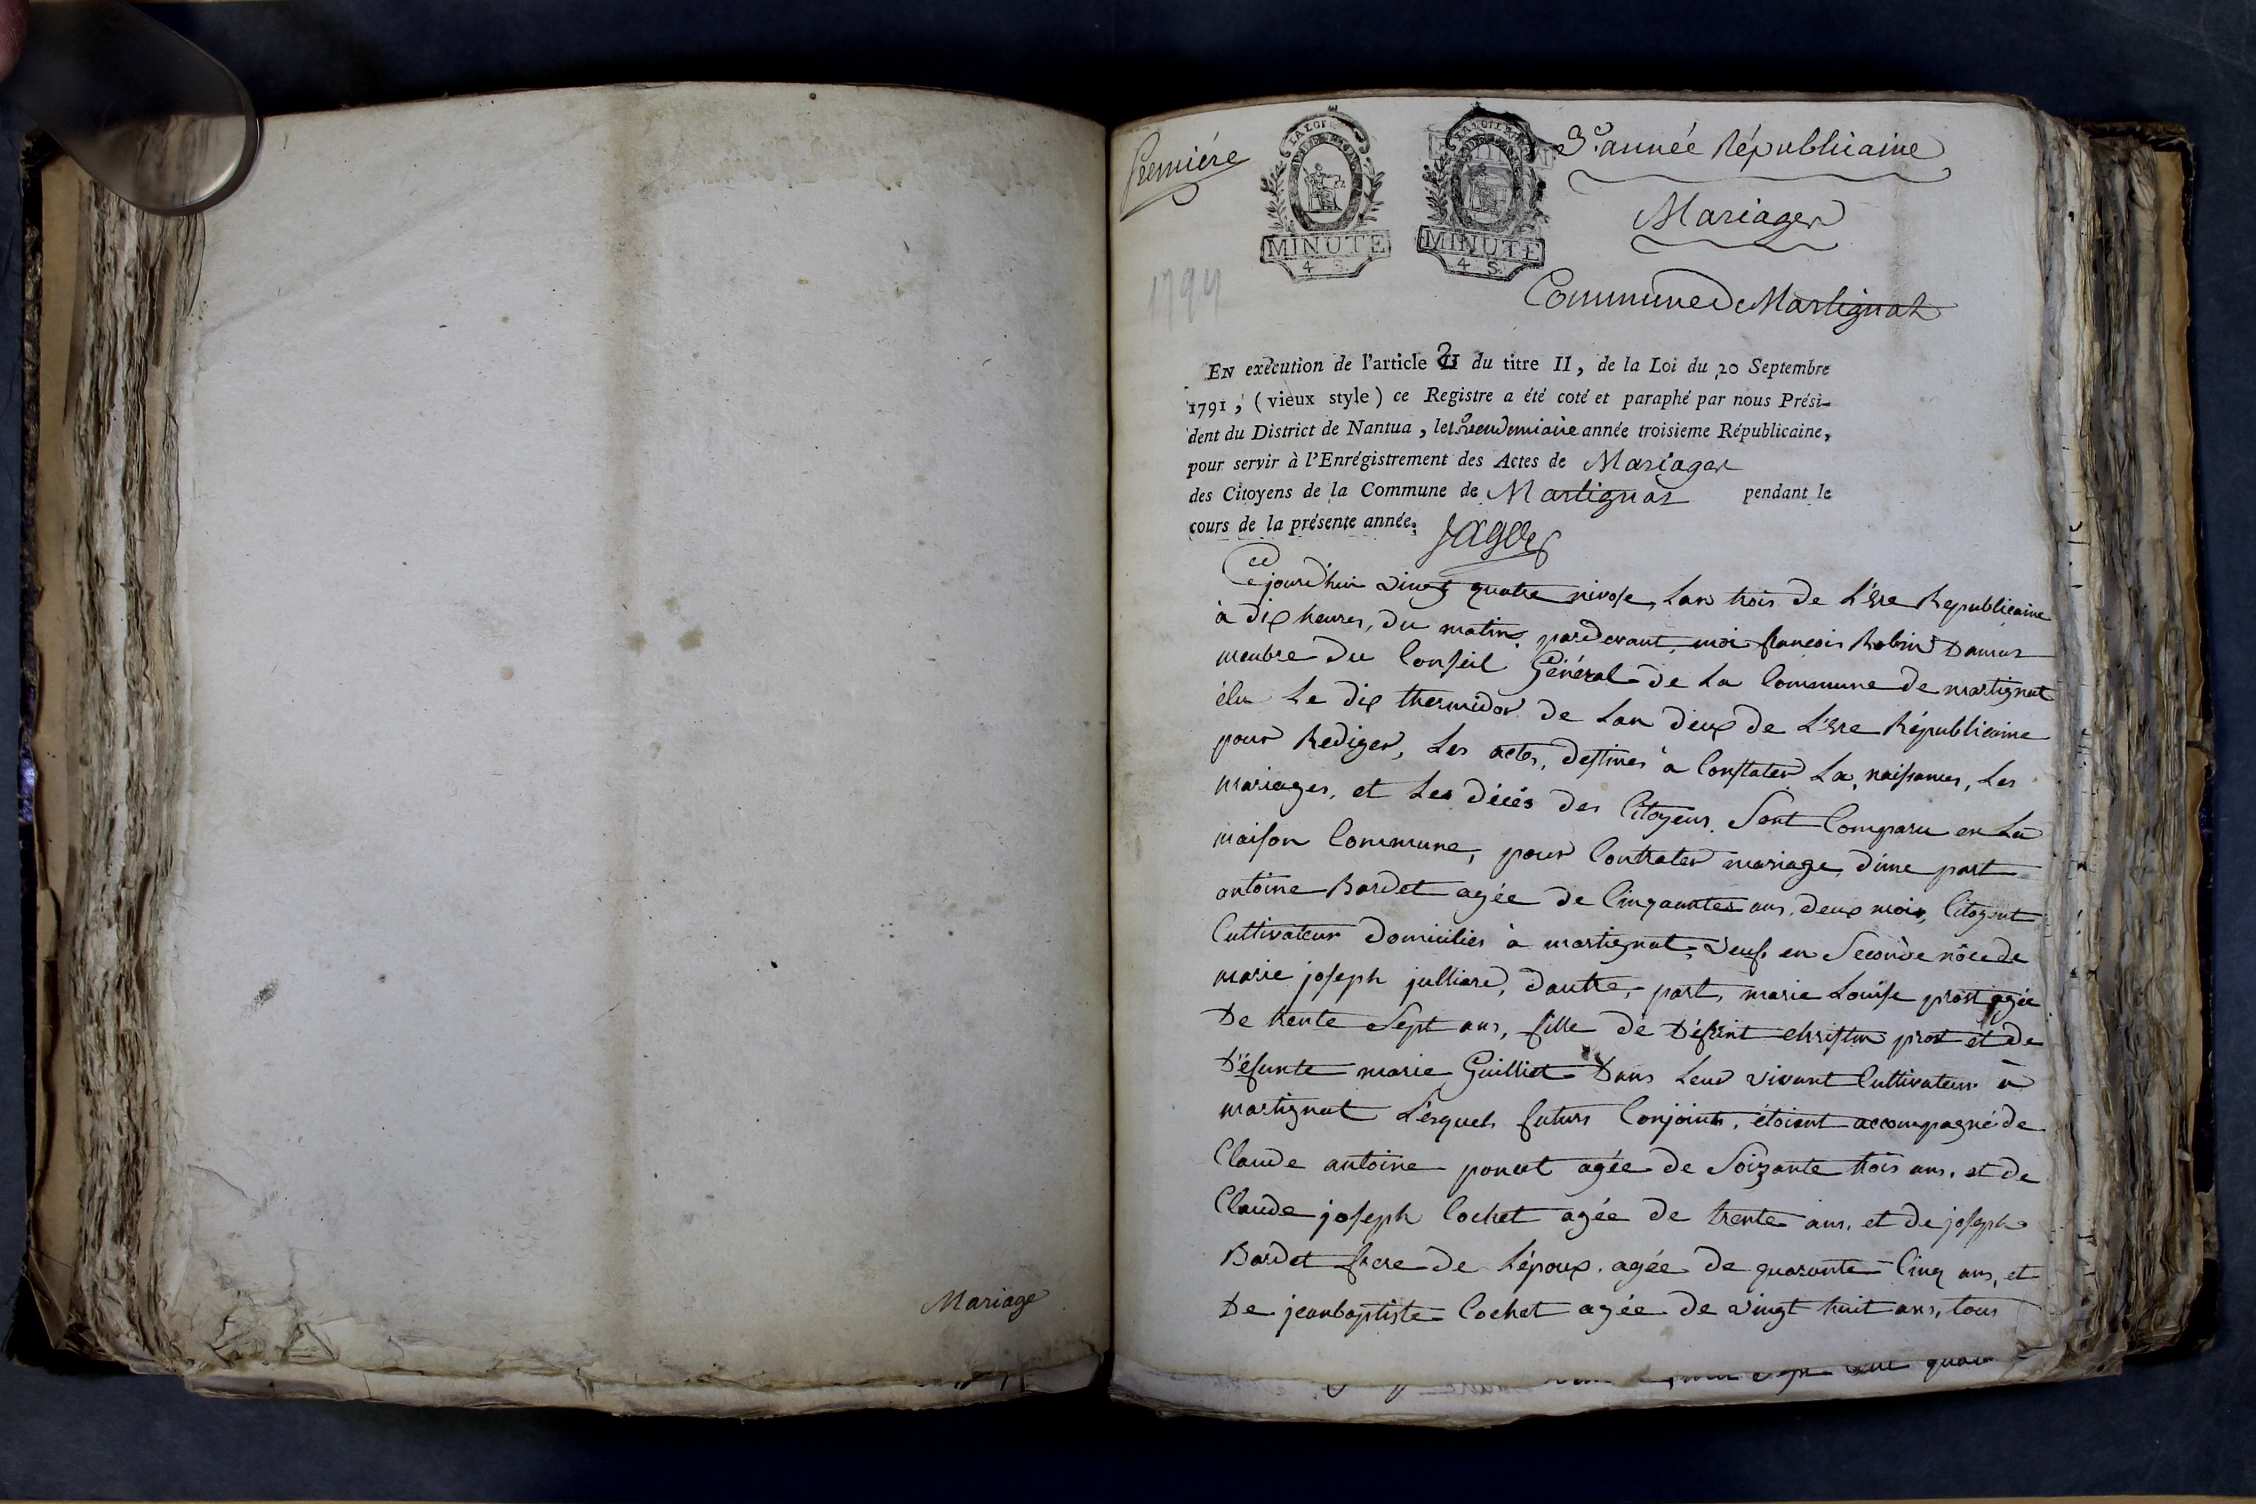 Mariage
Premiére
LA LOI
LA LOI
MINUTE
4 S.
MINUTE
4 S.
3.e année Républicaine
Mariages
Commune de Martignat
1794
EN exécution de l'article 2 du titre II, de la Loi du 20 Septembre
1791, (vieux style) ce Registre a été coté et paraphé par nous Prési-
dent du District de Nantua, le 1.er vendemiaire année troisieme Républicaine,
pour servir à l'Enrégistrement des Actes de Mariages
des Citoyens de la Commune de Martignat pendant le
cours de la présente année.
Cejourd'hui vingt quatre nivose, Lan trois de L'ère Republicaine
à dix heures, du matin, pardevant moi francois Robin Damas
membre du Conseil Général de La Commune de martignat
élu Le dix thermidor de Lan deux de L'ère Républicaine
pour Rediger, Les actes, destinés à Constater La naissances, Les
mariages, et Les décés des Citoyens. Sont Comparu en La
maison Commune, pour Contrater mariage, d'une part
antoine Bardet agée de Cinquantes ans, deux mois, Citoyent
Cultivateur domiciliés à martignat, veuf en Seconde nôce de
marie joseph julliard, dautre, part, marie Louise prost agée
De trente Sept ans, fille de Défunt christin prost et de
Défunte marie Guilliet Dans Leur vivant Cultivateur à
martignat Lesquels futurs Conjoints, étoient accompagné de
Claude antoine poncet agée de Soixante trois ans, et de
Claude joseph Cochet agée de trente ans, et de joseph
Bardet frere de L'époux, agée de quarante Cinq ans, et
De jeanbaptiste Cochet agée de vingt huit ans, tous